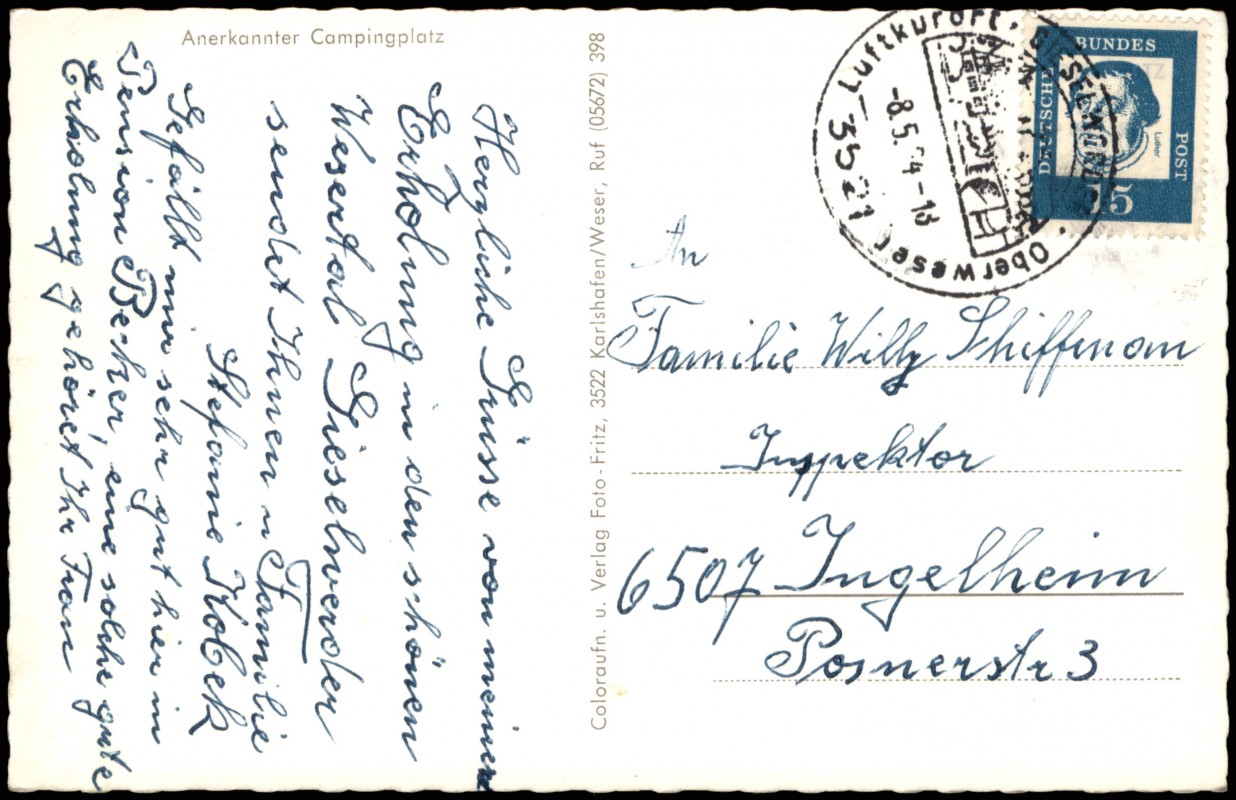 Anerkannter Campingplatz
Herzliche Grüsse von meiner
Erholung in den schönen
Wesertal Gieselwerder
sendet Ihnen u Familie
Stefanie Kobek
Gefällt mir sehr gut hier in
Pension Becker, eine solche gute
Erholung gehöret Ihr Frau
Coloraufn. u. Verlag Foto-Fritz, 3522 Karlshafen/Weser, Ruf (05672) 398
3521
Luftkurort
Oberweser
-8.5. 4-18
DEUTSCHE
BUNDES
POST
Luther
15
An
Familie Willy Schiffmann
Inspektor
6507 Ingelheim
Posnerstr 3